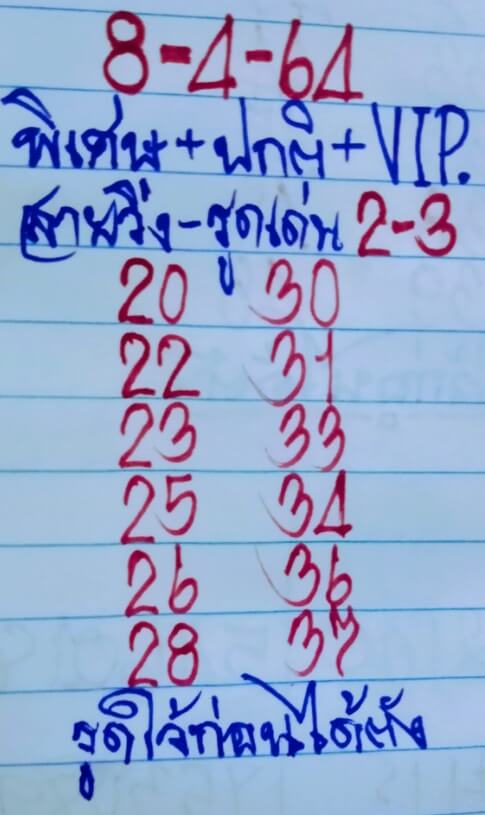 8-4-64
พิเศษ+ปกติ+VIP.
สายวิ่ง-รูดเด่น 2-3
20 30
22 31
23 33
25 34
26 36
28 37
รูดใว้ก่อนได้ตัง